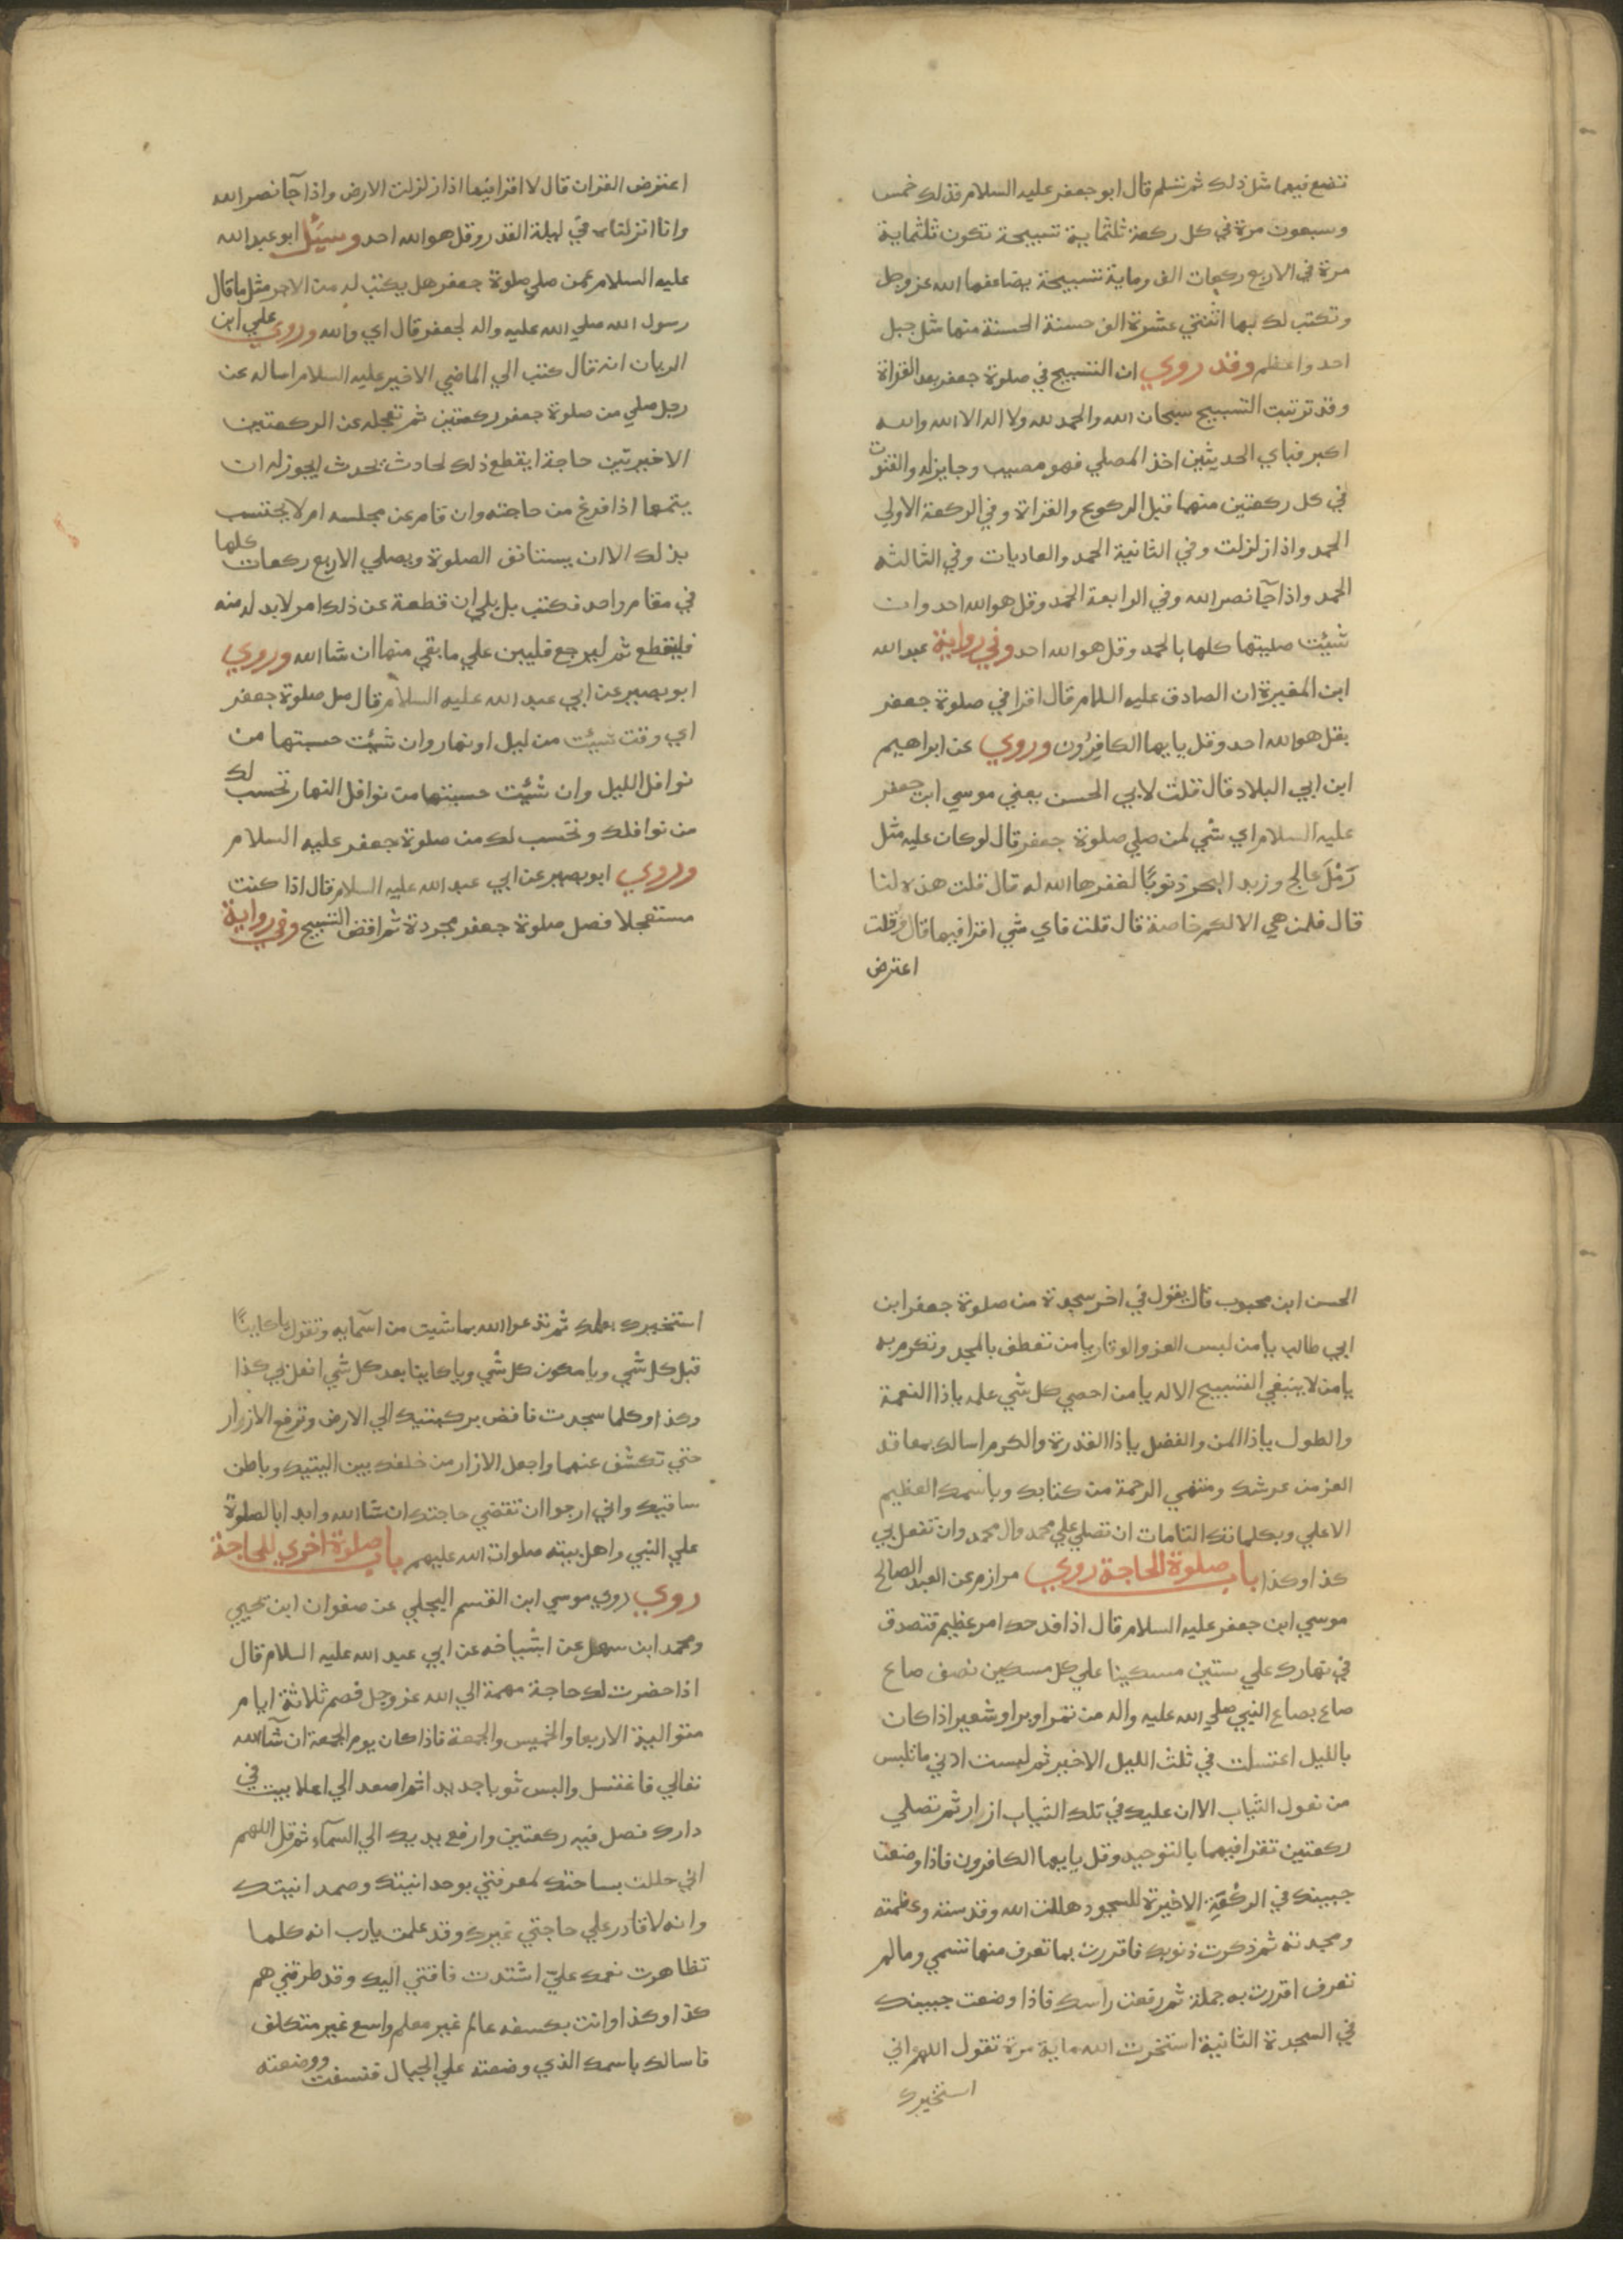 تتضع فيها مثل ذلك ثم تسلم قال ابو جعفر عليه السلام فذلك خمس
وسبعون مرة في كل ركعة ثلثماية تسبيحة تكون ثلثماية
مرة في الاربع ركعات الف وماية تسبيحة يضاعفها الله عز وجل
وتكتب لك بها اثنتي عشرة الف حسنة الحسنة منها مثل جبل
احد واعظم وقد روي ان التسبيح في صلوة جعفر بعد القراة
وقد ترتيب التسبيح سبحان الله والحمد لله ولا اله الا الله والله
اكبر فباي الحديثين اخذ المصلي فهو مصيب وجايز له والقنوت
في كل ركعتين منهما قبل الركوع والقراة وفي الركعة الاولي
الحمد واذا زلزلت وفي الثانية الحمد والعاديات وفي الثالثه
الحمد واذا جآ نصر الله وفي الرابعة الحمد وقل هو الله احد وان
شيئت صليتها كلها بالحمد وقل هو الله احد وفي رواية عبد الله
ابن المغيرة ان الصادق عليه السلام قال اقرا في صلوة جعفر
بقل هو الله احد وقل يايها الكافرون وروي عن ابراهيم
ابن ابي البلاد قال قلت لابي الحسن يعني موسي ابن جعفر
عليه السلام اي شي لمن صلي صلوة جعفر قال لو كان عليه مثل
رمل عالج وزبد البحر ذنوبًا لغفرها الله له قال قلت هذه لنا
قال فلمن هي الا لكم خاصة قال قلت فاي شي اقرا فيها قال وقلت
اعترض
اعترض القران قال لا اقرا فيها اذا زلزلت الارض واذا جآ نصر الله
وانا انزلناه في ليلة القدر وقل هو الله احد وسيئل ابو عبد الله
عليه السلام عمن صلي صلوة جعفر هل يكتب له من الاجر مثل ما قال
رسول الله صلي الله عليه واله لجعفر قال اي والله وروي علي ابن
الريان انه قال كتبت الي الماضي الاخير عليه السلام اساله عن
رجل صلي من صلوة جعفر ركعتين ثم تعجله عن الركعتين
الاخيرتين حاجة ايقطع ذلك لحادث يحدث ايجوز له ان
يتمها اذا فرغ من حاجته وان قام عن مجلسه ام لا يحتسب
بذلك الا ان يستانف الصلوة ويصلي الاربع ركعات كلها
في مقام واحد فكتب بل بلي ان قطعة عن ذلك امر لابد له منه
فليقطع ثم ليرجع فليبن علي ما بقي منها ان شا الله وروي
ابو بصير عن ابي عبد الله عليه السلام قال صل صلوة جعفر
اي وقت شيئت من ليل او نهار وان شيئت حسبتها من
نوافل الليل وان شيئت حسبتها من نوافل النهار تحسب لك
من نوافلك وتحسب لك من صلوة جعفر عليه السلام
وروي ابو بصير عن ابي عبد الله عليه السلام قال اذا كنت
مستعجلا فصل صلوة جعفر مجردة ثم اقض التسبيح وفي رواية
الحسن ابن محبوب قال يقول في اخر سجدة من صلوة جعفر ابن
ابي طالب يا من لبس العز والوقار يا من تعطف بالمجد وتكرم به
يا من لا ينبغي التسبيح الا له يا من احصي كل شي علمه يا ذا النعمة
والطول يا ذا المن والفضل يا ذا القدرة والكرم اسالك بمعاقد
العز من عرشك ومنتهي الرحمة من كتابك وباسمك العظيم
الاعلي وبكلماتك التامات ان تصلي علي محمد وال محمد وان تفعل بي
كذا وكذا باب صلوة الحاجة روي مرازم عن العبد الصالح
موسي ابن جعفر عليه السلام قال اذا فدحك امر عظيم فتصدق
في نهارك علي ستين مسكينا علي كل مسكين نصف صاع
صاع بصاع النبي صلي الله عليه واله من تمر او بر او شعير اذا كان
بالليل اغتسلت في ثلث الليل الاخير ثم لبست ادني ما تلبس
من تعول الثياب الا ان عليك في تلك الثياب ازار ثم تصلي
ركعتين تقرا فيهما بالتوحيد وقل يايها الكافرون فاذا وضعت
جبينك في الركعة الاخيرة للسجود هللت الله وقدسته وعظمته
ومجدته ثم ذكرت ذنوبك فاقررت بما تعرف منها تسمي وما لم
تعرف اقررت به جملة ثم رفعت راسك فاذا وضعت جبينك
في السجدة الثانية استخرت الله ماية مرة تقول اللهم اني
استخيرك
استخيرك بعلمك ثم تدعوا الله بما شيت من اسمآيه وتقول يا كاينًا
قبل كل شي ويا مكون كل شي ويا كاينا بعد كل شي افعل بي كذا
وكذا وكلما سجدت فافض بركبتيك الي الارض وترفع الازرار
حتي تكشف عنهما واجعل الازار من خلفك بين اليتيك وباطن
ساقيك واني ارجوا ان تقضي حاجتك ان شا الله وابدا بالصلوة
علي النبي واهل بيته صلوات الله عليهم باب صلوة اخري للحاجة
روي روي موسي ابن القسم البجلي عن صفوان ابن يحيي
ومحمد ابن سهل عن اشياخه عن ابي عبد الله عليه السلام قال
اذا حضرت لك حاجة مهمة الي الله عز وجل فصم ثلاثة ايام
متوالية الاربعا والخميس والجمعة فاذا كان يوم الجمعة ان شآ الله
تعالي فاغتسل والبس ثوبا جديدا ثم اصعد الي اعلا بيت في
دارك فصل فيه ركعتين وارفع يديك الي السمآء ثم قل اللهم
اني حللت بساحتك لمعرفتي بوحدانيتك وصمدانيتك
وانه لا قادر علي حاجتي غيرك وقد علمت يا رب انه كلما
تظاهرت نعمك عليّ اشتدت فاقتي اليك وقد طرقني هم
كذا وكذا وانت بكسفه عالم غير معلم واسع غير متكلف
فاسالك باسمك الذي وضعته علي الجبال فنسفت ووضعته